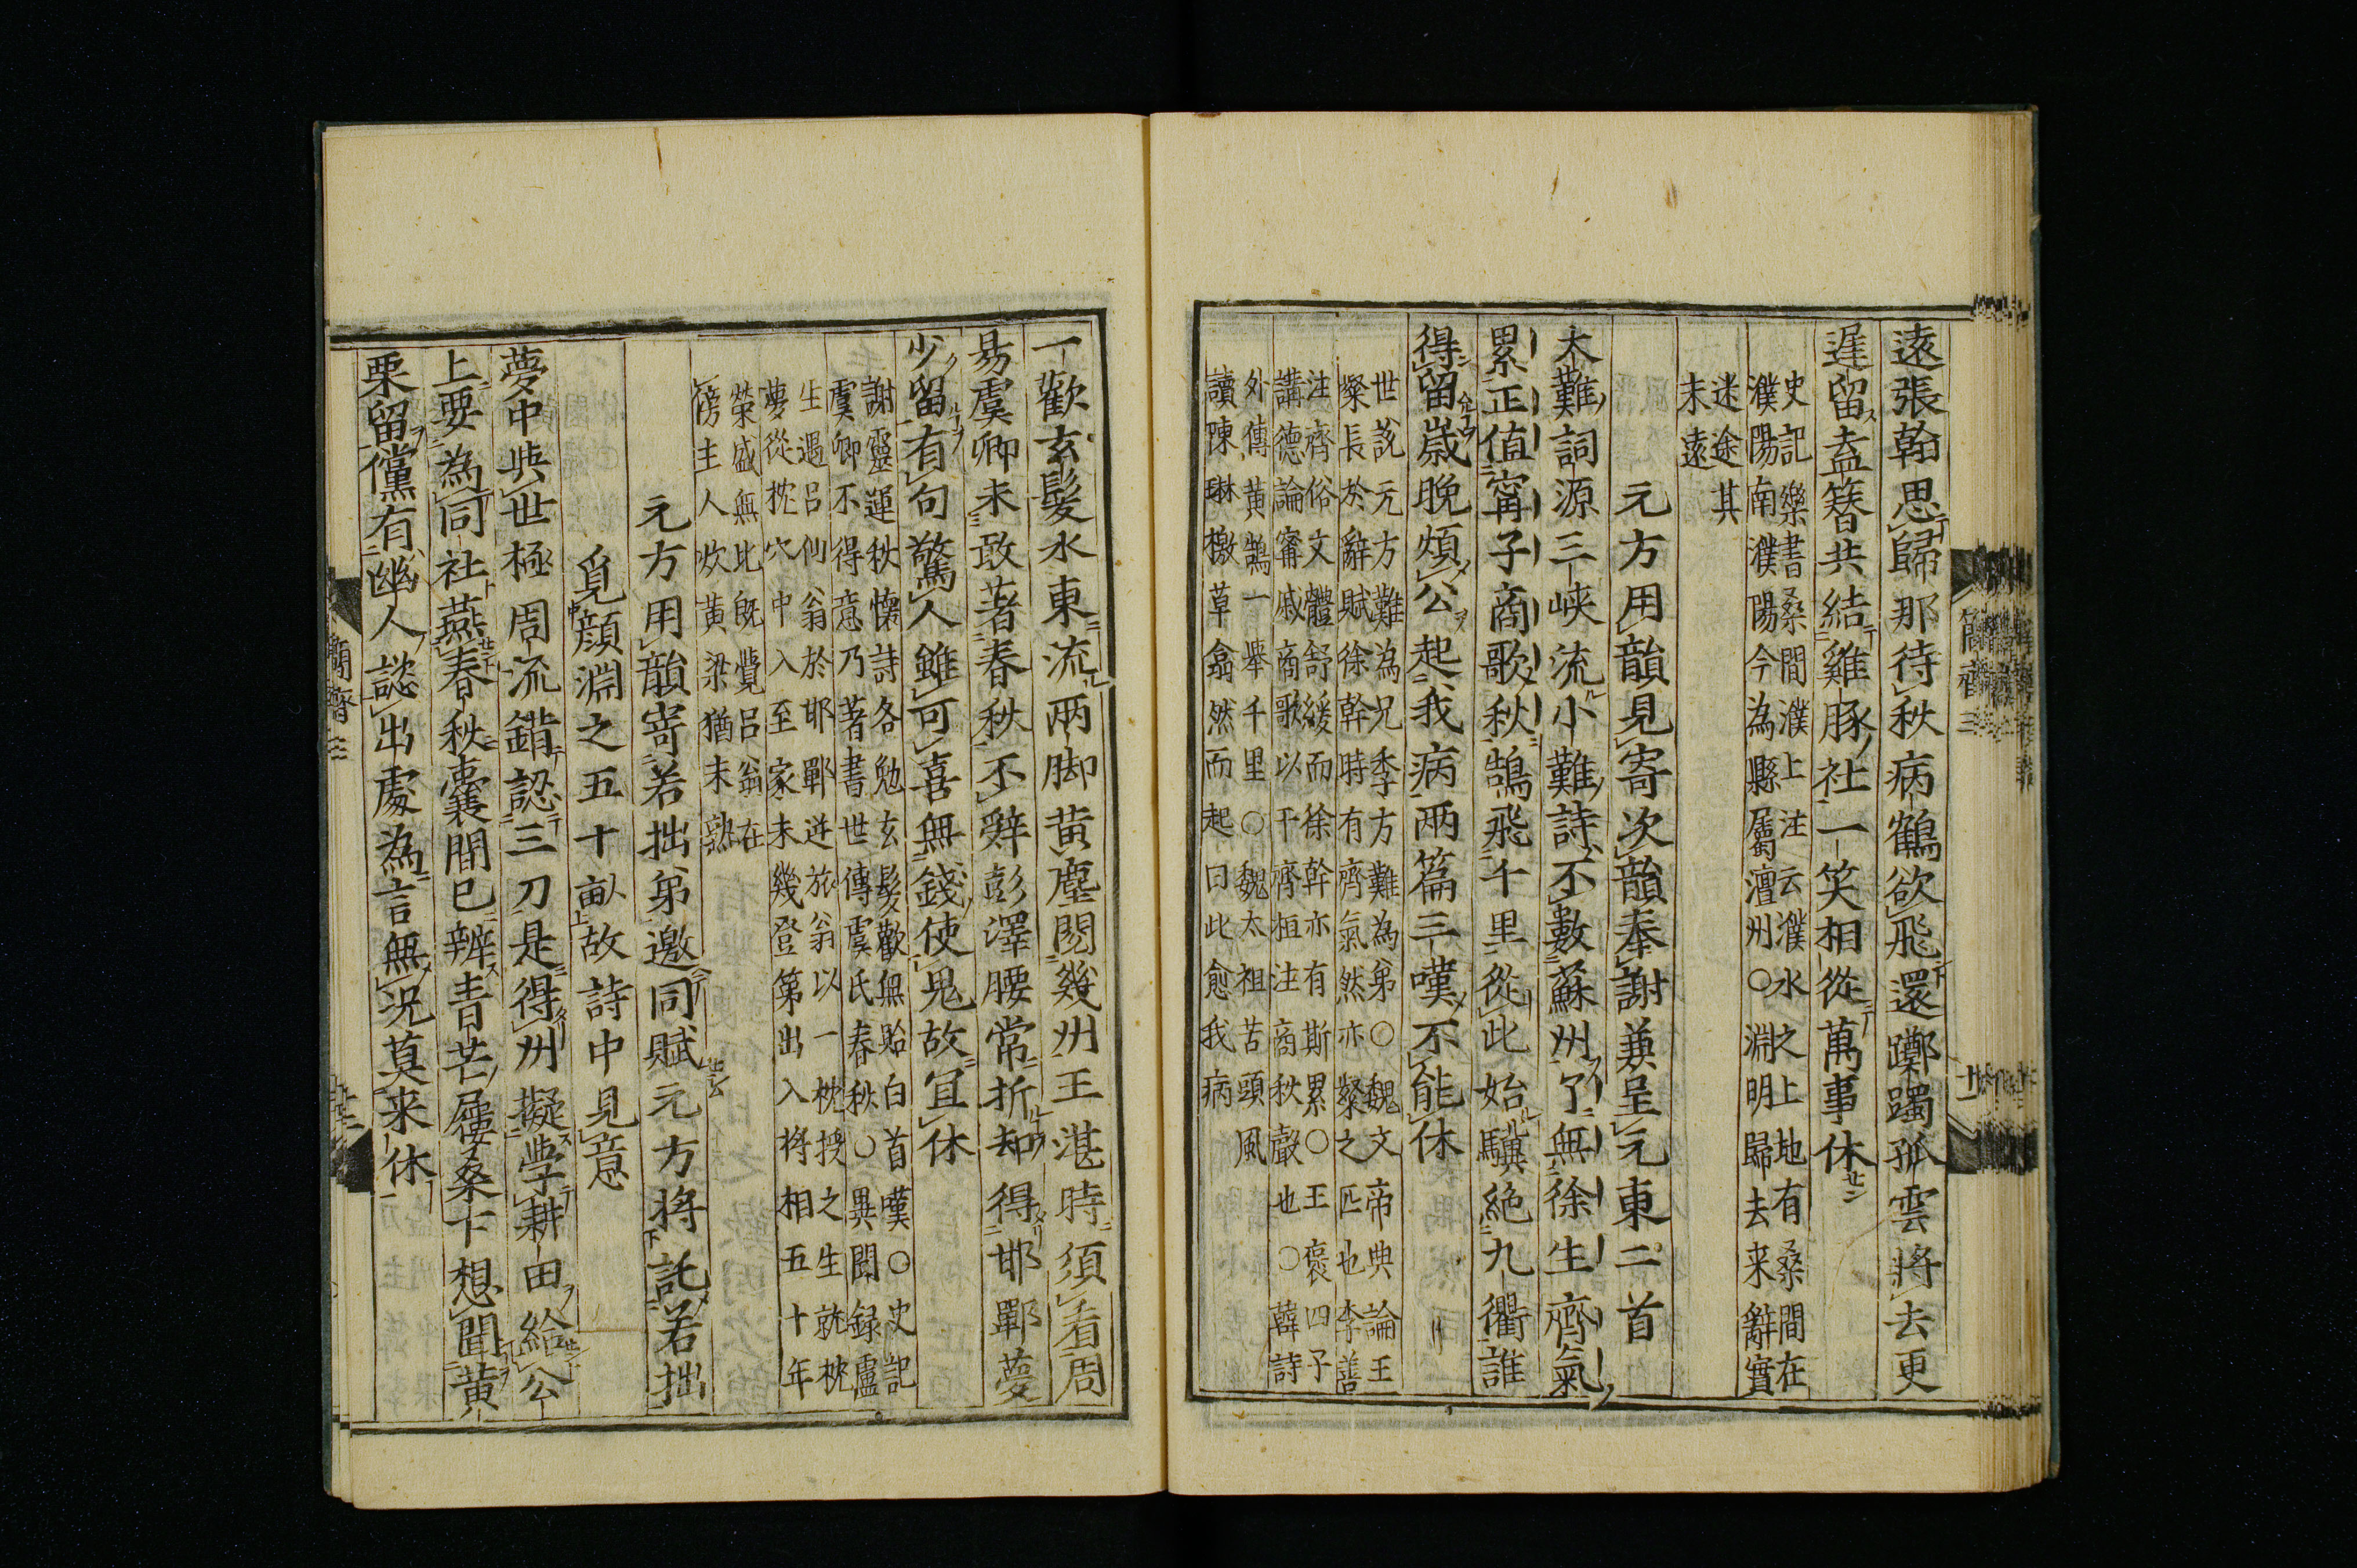 遠張翰思歸那待秋病鶴欲飛還躑躅孤雲將去更
遲留盍簪共結雞豚社一笑相從萬事休
史記樂書桑間濮上注云濮水之上地有桑間在
濮陽南濮陽今為縣屬澶州○淵明歸去来辭實
迷途其
未遠
元方用韻見寄次韻奉謝兼呈元東二首
大難詞源三峡流小難詩不數蘇州了無徐生齊氣
累正值甯子商歌秋鵠飛千里從此始驥絶九衢誰
得留歲晚煩公起我病兩篇三嘆不能休
世説元方難為兄季方難為弟○魏文帝典論王
粲長於辭賦徐幹時有齊氣然亦粲之匹也李善
注齊俗文體舒緩而徐幹亦有斯累○王褒四子
講德論甯戚商歌以干齊桓注商秋聲也○韓詩
外傳黄鵠一舉千里○魏太祖苦頭風
讀陳琳檄草翕然而起曰此愈我病
一歡玄髮水東流兩脚黄塵閲幾州王湛時須看周
易虞卿未敢著春秋不辭彭澤腰常折却得邯鄲夢
少留有句驚人雖可喜無錢使鬼故冝休
謝靈運秋懷詩各勉玄髮歡無貽白首嘆○史記
虞卿不得意乃著書世傳虞氏春秋○異聞録盧
生遇吕仙翁於邯鄲逆旅翁以一枕授之生就枕
夢從枕穴中入至家未幾登第出入将相五十年
榮盛無比既覺吕翁在
傍主人炊黄梁猶未熟
元方用韻寄若拙弟邀同賦元方将託若拙
覓顔淵之五十畝故詩中見意
夢中與世極周流錯認三刀是得州擬學耕田給公
上要為同社燕春秋囊間已辨青芒屨桑下想聞黄
栗留儻有幽人談出處為言無况莫来休
簡齋三
十一
簡齋三